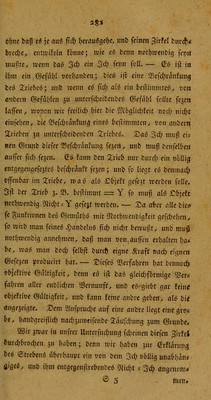 281
ohne daß es je aus sich herausgehe, und seinen Zirkel durch-
breche, entwikeln könne; wie es denn nothwendig seyn
mußte, wenn das Ich ein Ich seyn soll. — Es ist in
ihm ein Gefühl vorhanden; dies ist eine Beschränkung
des Triebes; und wenn es sich als ein bestimmtes, von
andern Gefühlen zu unterscheidendes Gefühl sollte sezen
lassen, wovon wir freilich hier die Möglichkeit noch nicht
einsehen, die Beschränkung eines bestimmten, von andern
Trieben zu unterscheidenden Triebes. Das Ich muß ei-
nen Grund dieser Beschränkung sezen, und muß denselben
ausser sich sezen. Es kann den Trieb nur durch ein völlig
entgegengeseztes beschränkt sezen; und so liegt es demnach
offenbar im Triebe, was als Objekt gesezt werden solle.
Ist der Trieb z. B. bestimmt = Y so muß als Objekt
nothwendig Nicht-Y gesezt werden. — Da aber alle die-
se Funktionen des Gemüths mit Nothwendigkeit geschehen,
so wird man seines Handelns sich nicht bewußt, und muß
nothwendig annehmen, daß man von aussen erhalten ha-
be, was man doch selbst durch eigne Kraft nach eignen
Gesezen producirt hat. — Dieses Verfahren hat dennoch
objektive Gültigkeit, denn es ist das gleichförmige Ver-
fahren aller endlichen Vernunft, und es giebt gar keine
objektive Gültigkeit, und kann keine andre geben, als die
angezeigte. Dem Anspruche auf eine andre liegt eine gro-
be, handgreiflich nachzuweisende Täuschung zum Grunde.
Wir zwar in unsrer Untersuchung scheinen diesen Zirkel
durchbrochen zu haben; denn wir haben zur Erklärung
des Strebens überhaupt ein von dem Ich völlig unabhän-
giges, und ihm entgegenstrebendes Nicht-Ich angenom-
S 5 men,